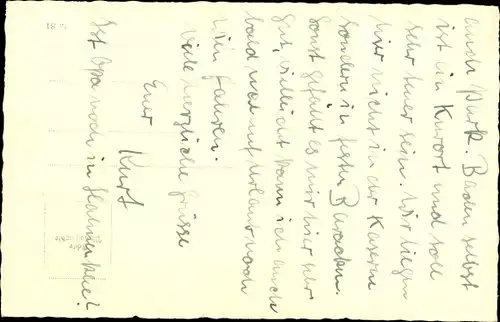 auch Park. Baden selbst
ist ein Kurort und soll
sehr teuer sein. Wir liegen
hier nicht in der Kaserne
sondern in festen Baracken.
Sonst gefällt es mir hier sehr
gut, vielleicht kann ich auch
bald mal auf Urlaub nach
Wien fahren.
Viele herzliche Grüsse
Euer Kurt
Ist Opa noch in